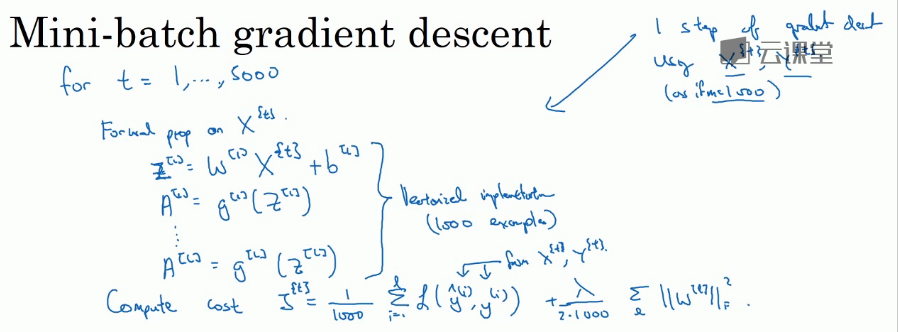 Mini-batch gradient descent
1 step of gradient descent
using X^{t}, Y^{t}
(as if m=1000)
云课堂
for t = 1,...,5000
Forward prop on X^{t}.
Z^[1] = W^[1] X^{t} + b^[1]
A^[1] = g^[1](Z^[1])
⋮
A^[L] = g^[L](Z^[L])
Vectorized implementation
(1000 examples)
from X^{t}, Y^{t}.
Compute cost J^{t} = 1/1000 Σ_{i=1}^{l} L(ŷ^(i), y^(i)) + λ/(2·1000) Σ_l ||W^[l]||_F^2.